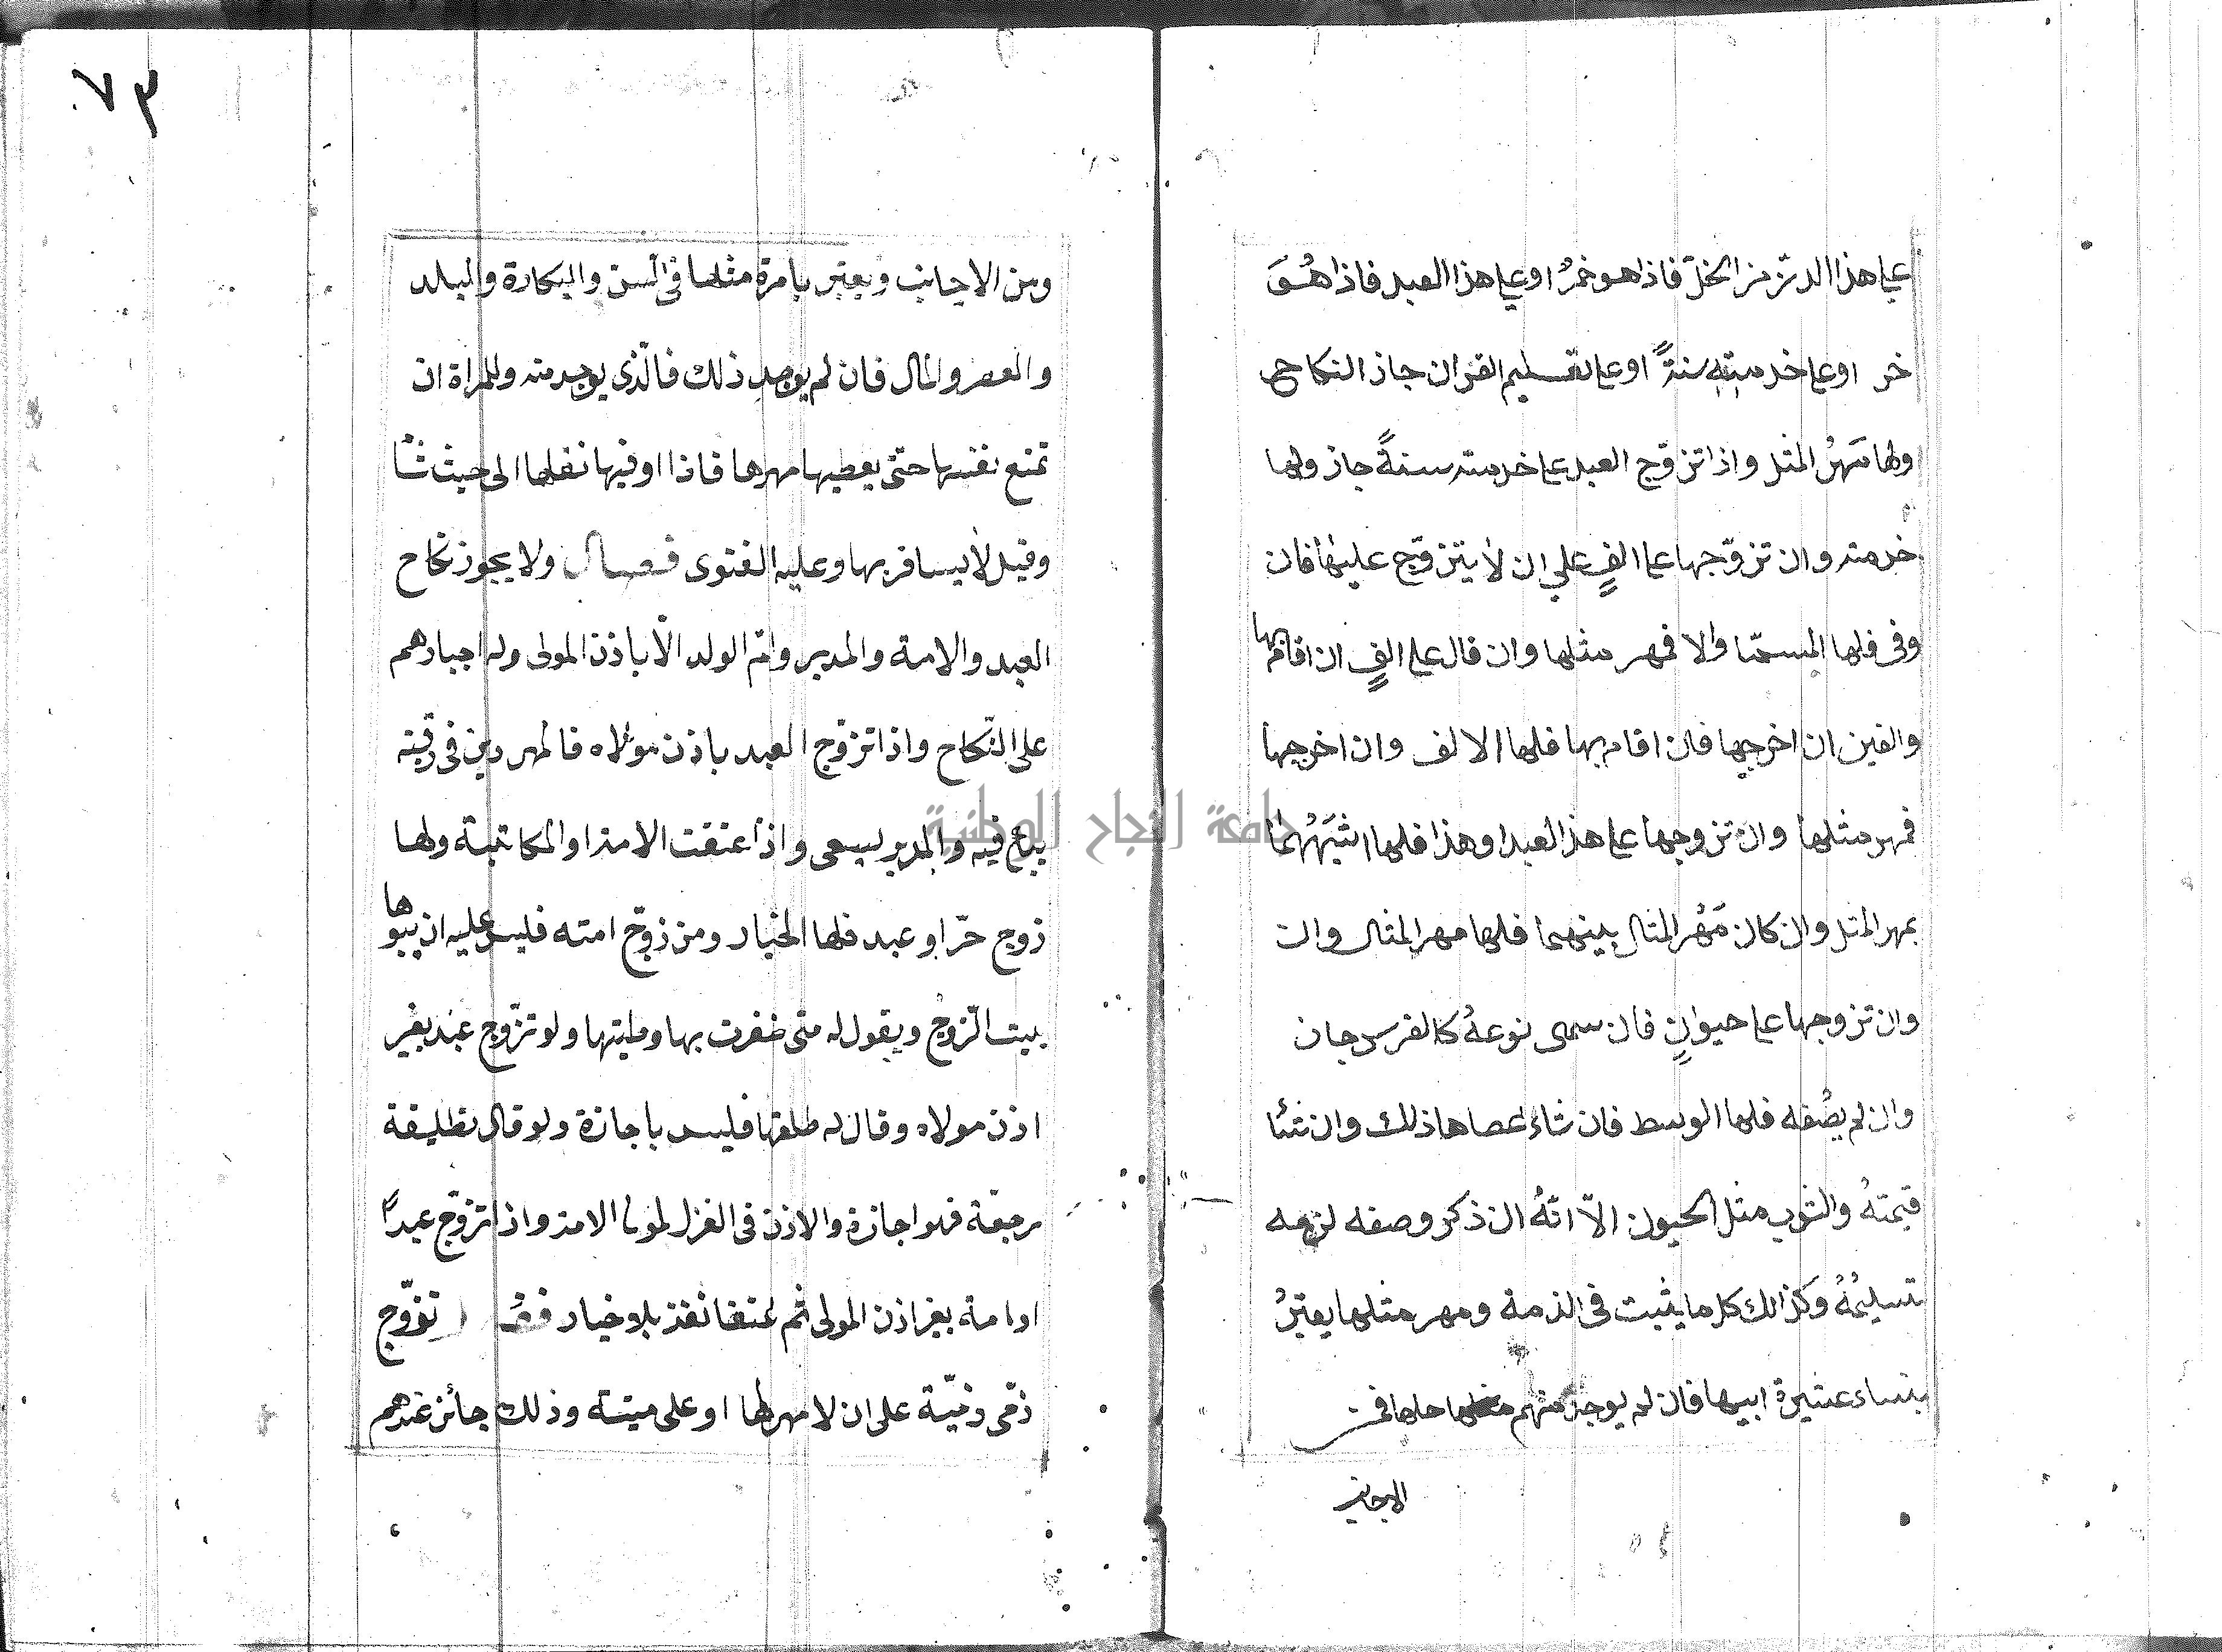 على هذا الدنّ من الخلّ فاذا هو خمرٌ او على هذا العبد فاذا هُوَ
حر او على خدمتهِ سنةً او على تعليم القران جاز النكاح
ولها مَهرُ المثل واذا تزوّج العبد على خدمته سنةً جاز ولها
خدمته وان تزوّجها على الفٍ على ان لا يتزوّج عليها فان
وفى فلها المسمّا والا فمهر مثلها وان قال على الفٍ ان اقام بها
والفين ان اخرجها فان اقام بها فلها الالف وان اخرجها
فمهر مثلها وان تزوجها على هذا العبد او هذا فلها اشبَهُهُما
بمهر المثل وان كان مَهْر المثل بينهما فلها مهر المثل وان
وان تزوجها على حيوانٍ فان سمى نوعهُ كالفرس جاز
وان لم يصْفه فلها الوسط فان شاء اعطاها ذلك وان شئا
قيمتهُ والثوب مثل الحيون الاّ انّهُ ان ذكر وصفه لزمه
تسليمُهُ وكَذالك كل ما يثبت فى الذمة ومهر مثلها يعتبرُ
بنساء عشيرة ابيها فان لم يوجد منهم مثلها حلها فمن
الاجانب
٧٣
ومن الاجانب ويعتبر بامرة مثلها فى السن والبكارة والبلد
والعصر والمال فان لم يوجد ذلك فالّذى يوجد منه وللمراة ان
تمنع نفسها حتّى يعطيها مهرها فاذا اوفيها نقلها الى حيث شآ
وقيل لا يسافر بها وعليه الفتوى فصل ولا يجوز نكاح
العبد والامة والمدبر وامّ الولد الاّ باذن المولى وله اجبارهم
على النّكاح واذا تزوّج العبد باذن مولاه فالمهر دين فى رقبته
يباع فيه والمدبر يسعى واذا عتقت الامة او المكاتبة ولها
زوج حرّ او عبد فلها الخيار ومن زوّج امته فليس عليه ان يبوها
بيت الزّوج ويقول له متى ضفرت بها وطيتها ولو تزّوج عبد بغير
اذن مولاه وقال له طلقها فليس باجازة ولو قال تطليقة
رجعّة فهو اجازة والاذن فى العزل لمولى الامة واذا تزوّج عبداً
او امة بغير اذن المولى ثم عتقا نفذ بلا خيار فصل تزوّج
ذمّى ذميّة على ان لا مهر لها او على ميتة وذلك جائز عندهم
جامعة النجاح الوطنية